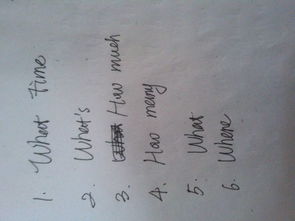 1. What time
2. What's
3. How much
4. How many
5. What
6. Where